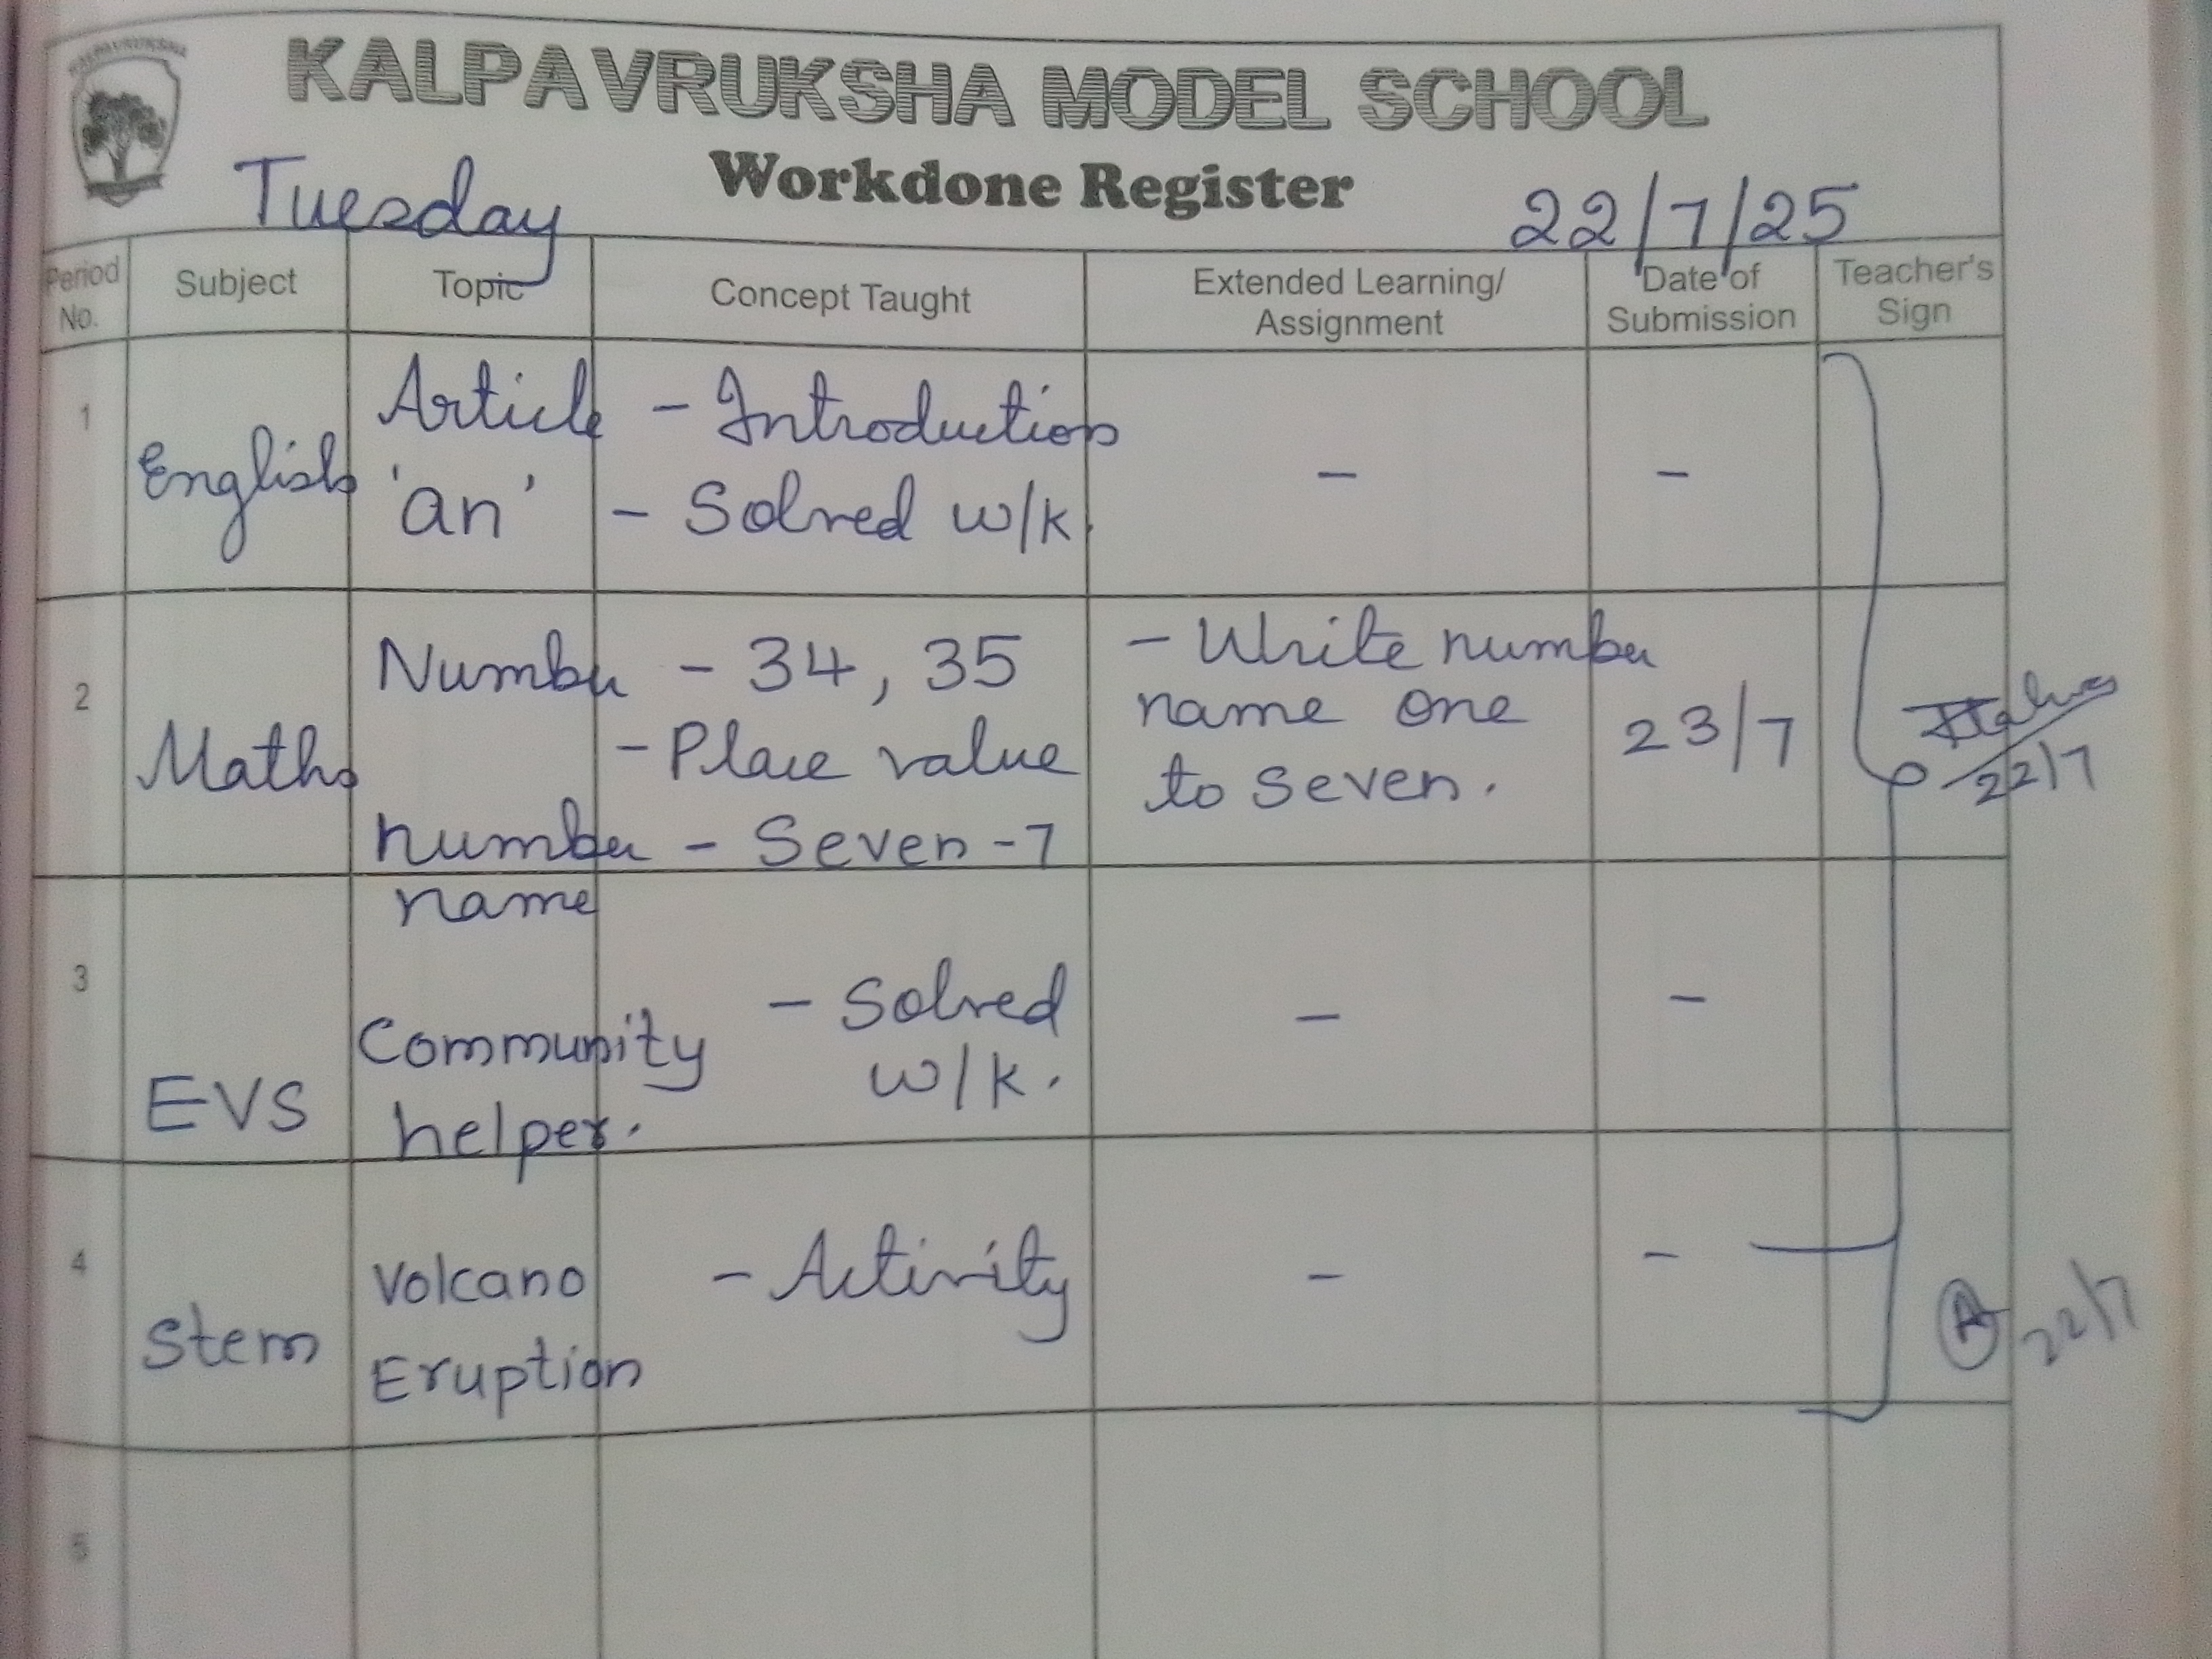 KALPAVRUKSHA
KALPAVRUKSHA MODEL SCHOOL
Workdone Register
Tuesday 22/7/25
Period No. Subject Topic Concept Taught Extended Learning/ Assignment Date of Submission Teacher's Sign
1 English Article 'an' - Introduction
- Solved w/k. - -
2 Maths Number - 34, 35
- Place value
number name - Seven - 7
- Write number
name one
to seven. 23/7
22/7
3 EVS Community
helper. - Solved
w/k. - -
4 Stem Volcano
Eruption - Activity - -
A 22/7
5